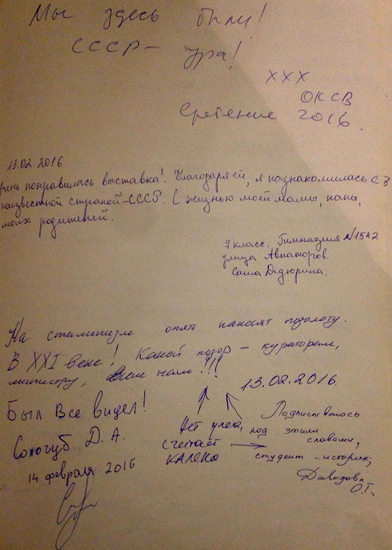 Мы здесь были!
СССР - ура!
XXX
ОКСВ
Сретение 2016.
13.02.2016
понравилась выставка! Благодаря ей, я познакомилась с
неизвестной страной - СССР. С жизнью моей мамы, папы,
моих родителей.
7 класс. Гимназия №1542
улица Авиаторов.
Саша Дедюрина.
На сталинизм опять наносят позолоту.
В XXI веке! Какой позор - кураторам,
министру, всем нам!!!
13.02.2016
Был Все видел!
Сологуб Д. А.
14 февраля 2016
Нет улек,
считает
КАЛЕКА
Подписываюсь
под этими
словами,
студент-историк,
Давыдова
О.Г.